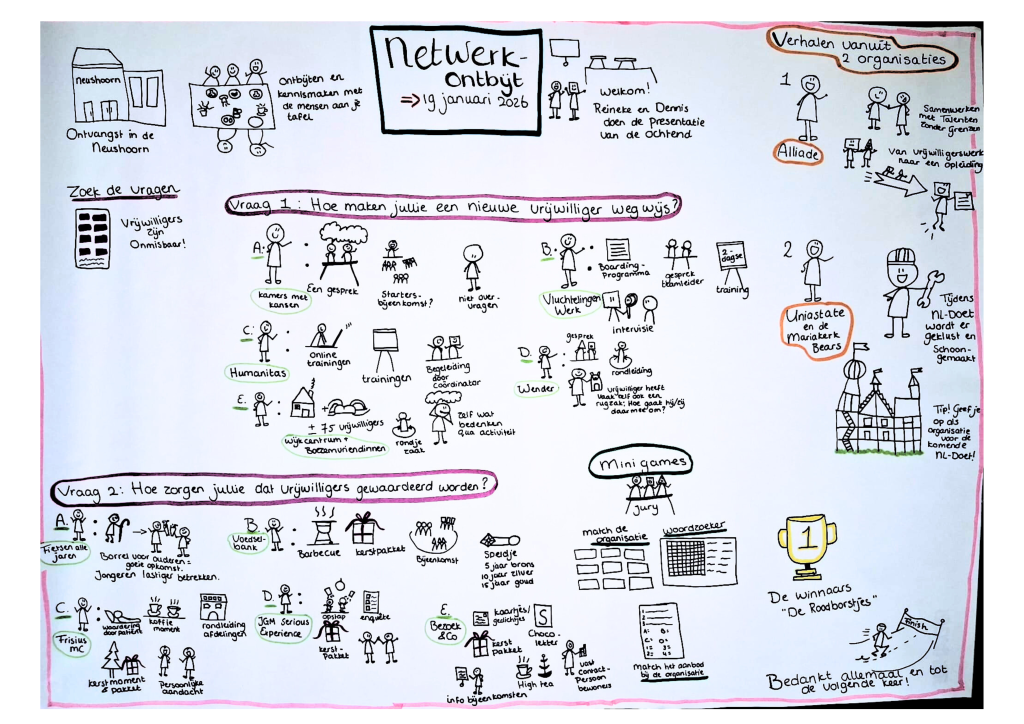 Neushoorn
Ontvangst in de
Neushoorn
Ontbijten en
kennismaken met
de mensen aan je
tafel
Netwerk-
ontbijt
=> 19 januari 2026
Welkom!
Reineke en Dennis
doen de presentatie
van de ochtend
Verhalen vanuit
2 organisaties
1
Alliade
Samenwerken
met Talenten
zonder grenzen
van vrijwilligerswerk
naar een opleiding
2
Uniastate
en de
Mariakerk
Bears
Tijdens
NL-Doet
wordt er
geklust en
Schoon-
gemaakt
Tip! Geef je
op als
organisatie
voor de
komende
NL-Doet!
Zoek de vragen
Vrijwilligers
zijn
Onmisbaar!
Vraag 1: Hoe maken jullie een nieuwe vrijwilliger wegwijs?
A:
kamers met
kansen
Een gesprek
Starters-
bijeenkomst?
niet over-
vragen
B:
Vluchtelingen
Werk
Boarding-
Programma
gesprek
teamleider
2-
daagse
training
intervisie
C:
Humanitas
online
trainingen
trainingen
Begeleiding
door
coördinator
D:
Wender
gesprek
rondleiding
vrijwilliger heeft
vaak zelf ook een
rugzak: Hoe gaat hij/zij
daar mee om?
E:
± 75 vrijwilligers
Wijkcentrum +
Boezemvriendinnen
rondje
zaak
zelf wat
bedenken
qua activiteit
Vraag 2: Hoe zorgen jullie dat vrijwilligers gewaardeerd worden?
A:
Fietsen alle
jaren
Borrel voor ouderen =
goeie opkomst.
Jongeren lastiger betrekken.
B
Voedsel-
bank
Barbecue
kerstpakket
Bijeenkomst
Speldje
5 jaar brons
10 jaar zilver
15 jaar goud
C:
Frisius
MC
waardering
door patient
koffie
moment
rondleiding
afdelingen
kerstmoment
& pakket
Persoonlijke
aandacht
D:
JGM Serious
Experience
opstap
enquête
kerst-
pakket
E.
Bezoek
& Co
kaartjes/
gedichtjes
kerst
pakket
S
Choco-
letter
info bijeenkomsten
High tea
vast
contact-
Persoon
bewoners
Mini games
jury
match de
organisatie
woordzoeker
match het aanbod
bij de organisatie
1
De winnaars
"De Roodborstjes"
Finish
Bedankt allemaal en tot
de volgende keer!